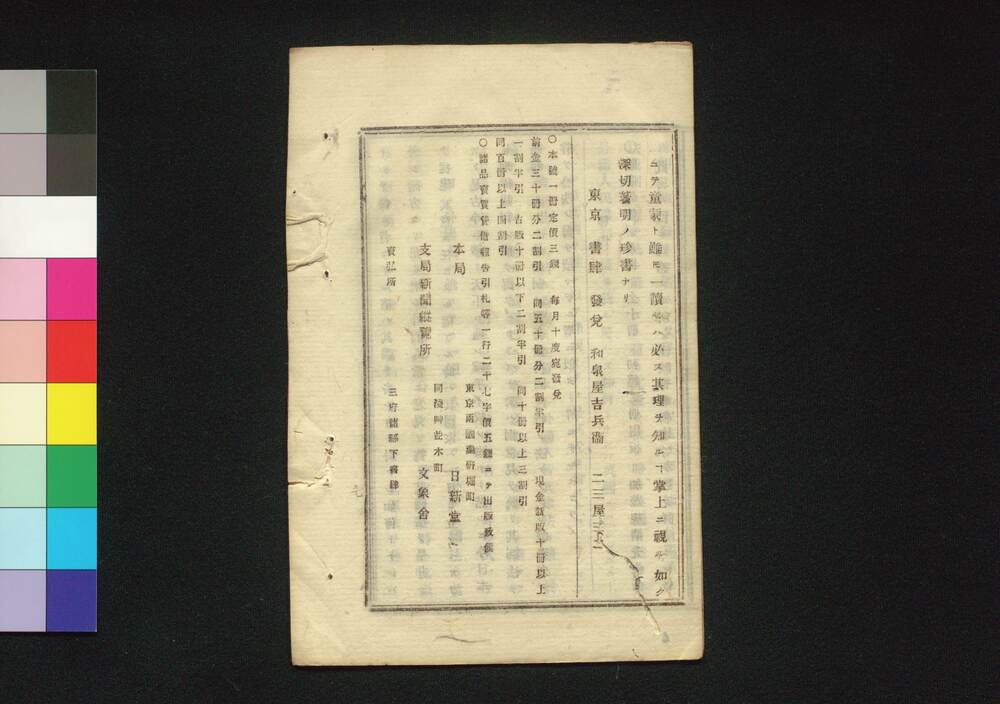 ニテ童蒙ト雖モ一讀セハ必ス其理ヲ知ルヿ掌上ニ視ルカ如ク
深切著明ノ珍書ナリ
東京 書肆 發兌 和泉屋吉兵衞 二三屋
〇本號一冊定價三錢 每月十度宛發兌
前金三十冊分二割引 同五十冊分二割半引 現金新版十冊以上
一割半引 古版十冊以下二割半引 同十冊以上三割引
同百冊以上四割引
〇諸品賣買貸借報告引札等一行二十七字價五錢ニテ出版致候
東京兩國藥研堀町
本局 日新堂
同淺草並木町
支局新聞縱覽所 文象舍
賣弘所 三府諸縣下書肆